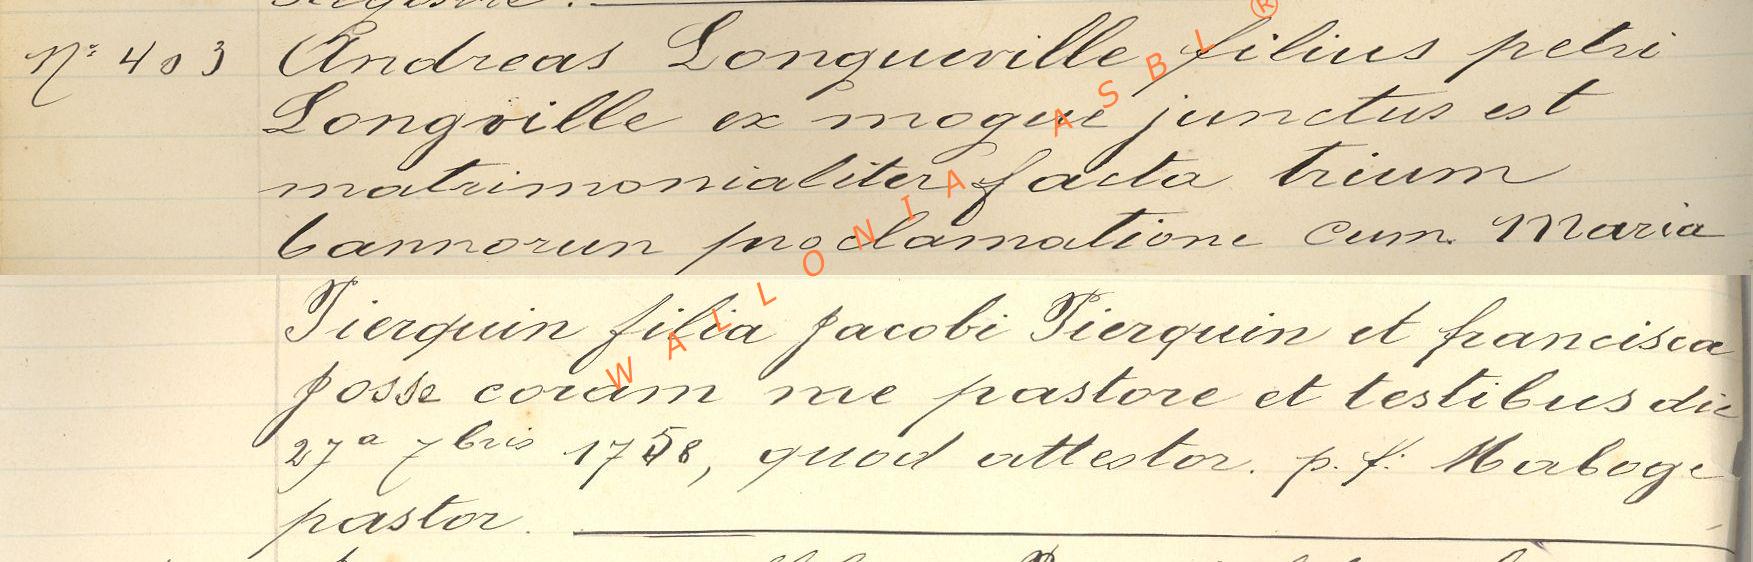 registre.
N° 403 Andreas Longueville filius petri
Longville ex mogue junctus est
matrimonialiter facta trium
bannorun proclamatione cum Maria
Pierquin filia Jacobi Pierquin et francisca
Josse coram me pastore et testibus die
27a 7bris 1758, quod attestor. p. f. Maboge
pastor.
WALLONIA ASBL ®